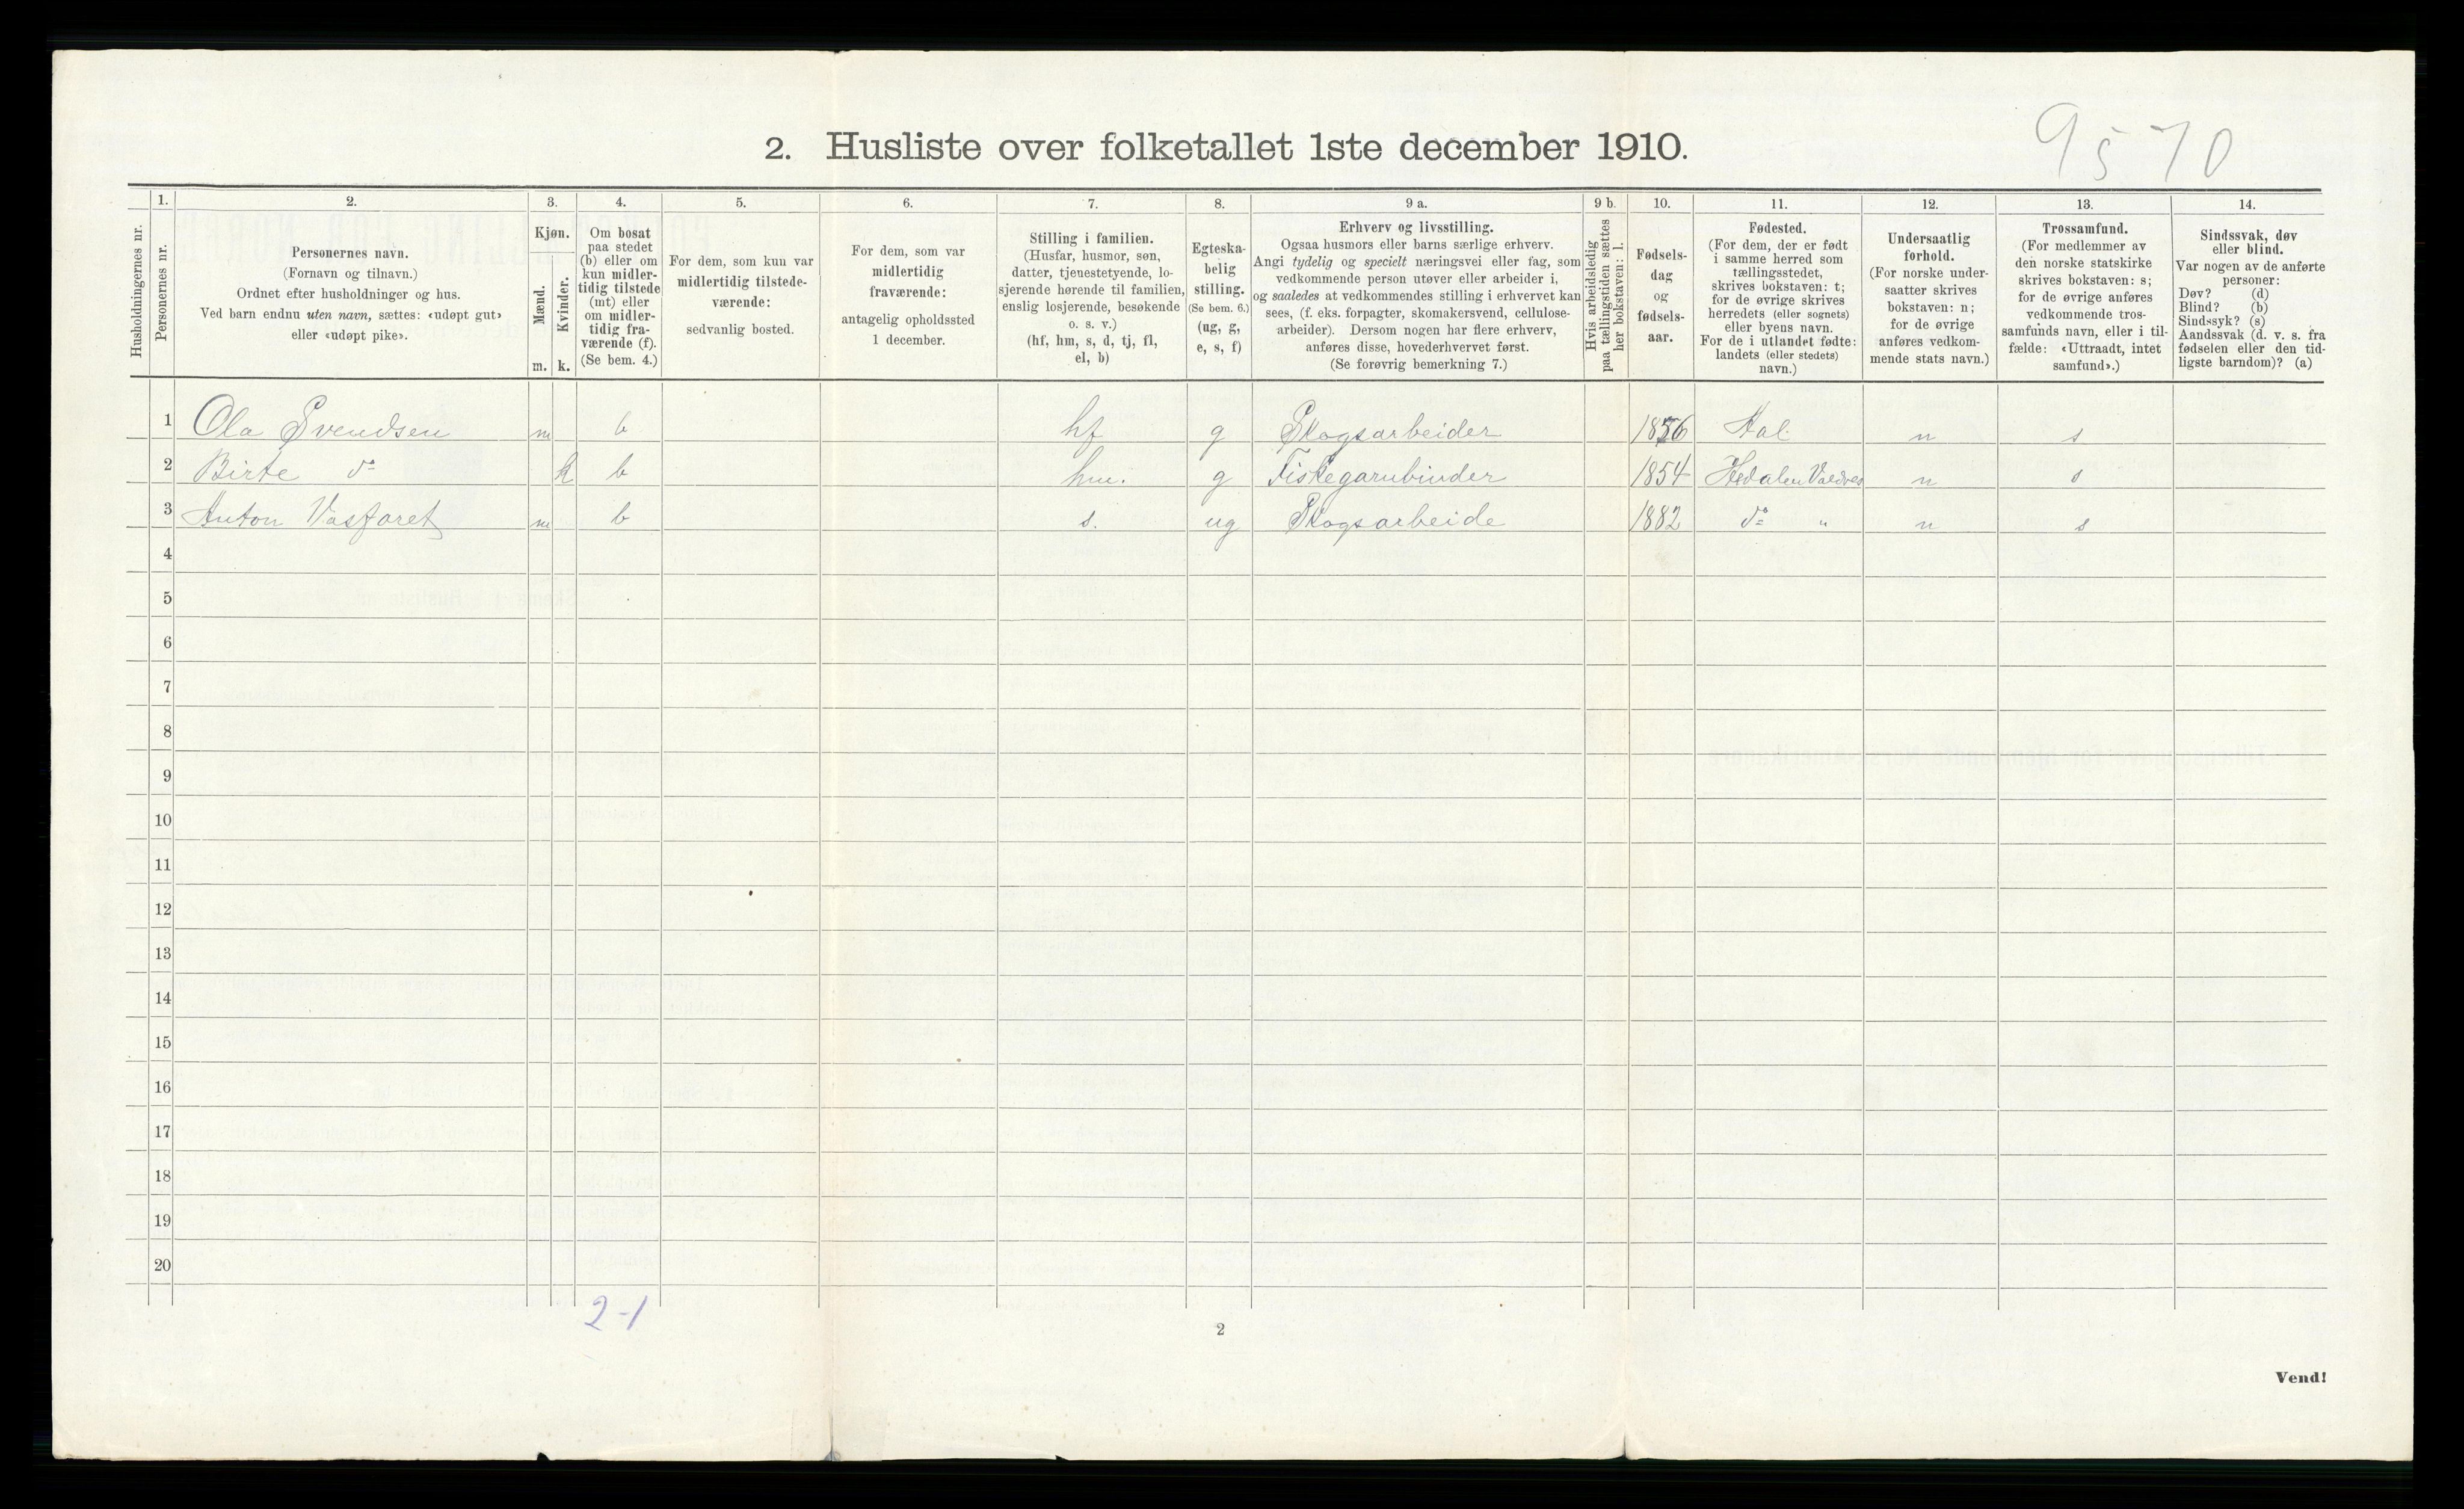 2. Husliste over folketallet 1ste december 1910.
9570
Husholdningernes nr.
1.
Personernes nr.
2.
Personernes navn.
(Fornavn og tilnavn.)
Ordnet efter husholdninger og hus.
Ved barn endnu uten navn, sættes: «udøpt gut»
eller «udøpt pike».
3.
Kjøn.
Mænd.
Kvinder.
m. k.
4.
Om bosat
paa stedet
(b) eller om
kun midler-
tidig tilstede
(mt) eller
om midler-
tidig fra-
værende (f).
(Se bem. 4.)
5.
For dem, som kun var
midlertidig tilstede-
værende:
sedvanlig bosted.
6.
For dem, som var
midlertidig
fraværende:
antagelig opholdssted
1 december.
7.
Stilling i familien.
(Husfar, husmor, søn,
datter, tjenestetyende, lo-
sjerende hørende til familien,
enslig losjerende, besøkende
o. s. v.)
(hf, hm, s, d, tj, fl,
el, b)
8.
Egteska-
belig
stilling.
(Se bem. 6.)
(ug, g,
e, s, f)
9 a.
Erhverv og livsstilling.
Ogsaa husmors eller barns særlige erhverv.
Angi tydelig og specielt næringsvei eller fag, som
vedkommende person utøver eller arbeider i,
og saaledes at vedkommendes stilling i erhvervet kan
sees, (f. eks. forpagter, skomakersvend, cellulose-
arbeider). Dersom nogen har flere erhverv,
anføres disse, hovederhvervet først.
(Se forøvrig bemerkning 7.)
9 b.
Hvis arbeidsledig
paa tællingstiden sættes
her bokstaven: l.
10.
Fødsels-
dag
og
fødsels-
aar.
11.
Fødested.
(For dem, der er født
i samme herred som
tællingsstedet,
skrives bokstaven: t;
for de øvrige skrives
herredets (eller sognets)
eller byens navn.
For de i utlandet fødte:
landets (eller stedets)
navn.)
12.
Undersaatlig
forhold.
(For norske under-
saatter skrives
bokstaven: n;
for de øvrige
anføres vedkom-
mende stats navn.)
13.
Trossamfund.
(For medlemmer av
den norske statskirke
skrives bokstaven: s;
for de øvrige anføres
vedkommende tros-
samfunds navn, eller i til-
fælde: «Uttraadt, intet
samfund».)
14.
Sindssvak, døv
eller blind.
Var nogen av de anførte
personer:
Døv? (d)
Blind? (b)
Sindssyk? (s)
Aandssvak (d. v. s. fra
fødselen eller den tid-
ligste barndom)? (a)
1 Ola Svendsen m b hf g Skogsarbeider 1856 Hal n s
2 Birte do k b hm. g Fiskegarnbinder 1854 Hedalen Valdres n s
3 Anton Vasfaret m b s. ug Skogsarbeide 1882 do " n s
4
5
6
7
8
9
10
11
12
13
14
15
16
17
18
19
20
2-1
2
Vend!